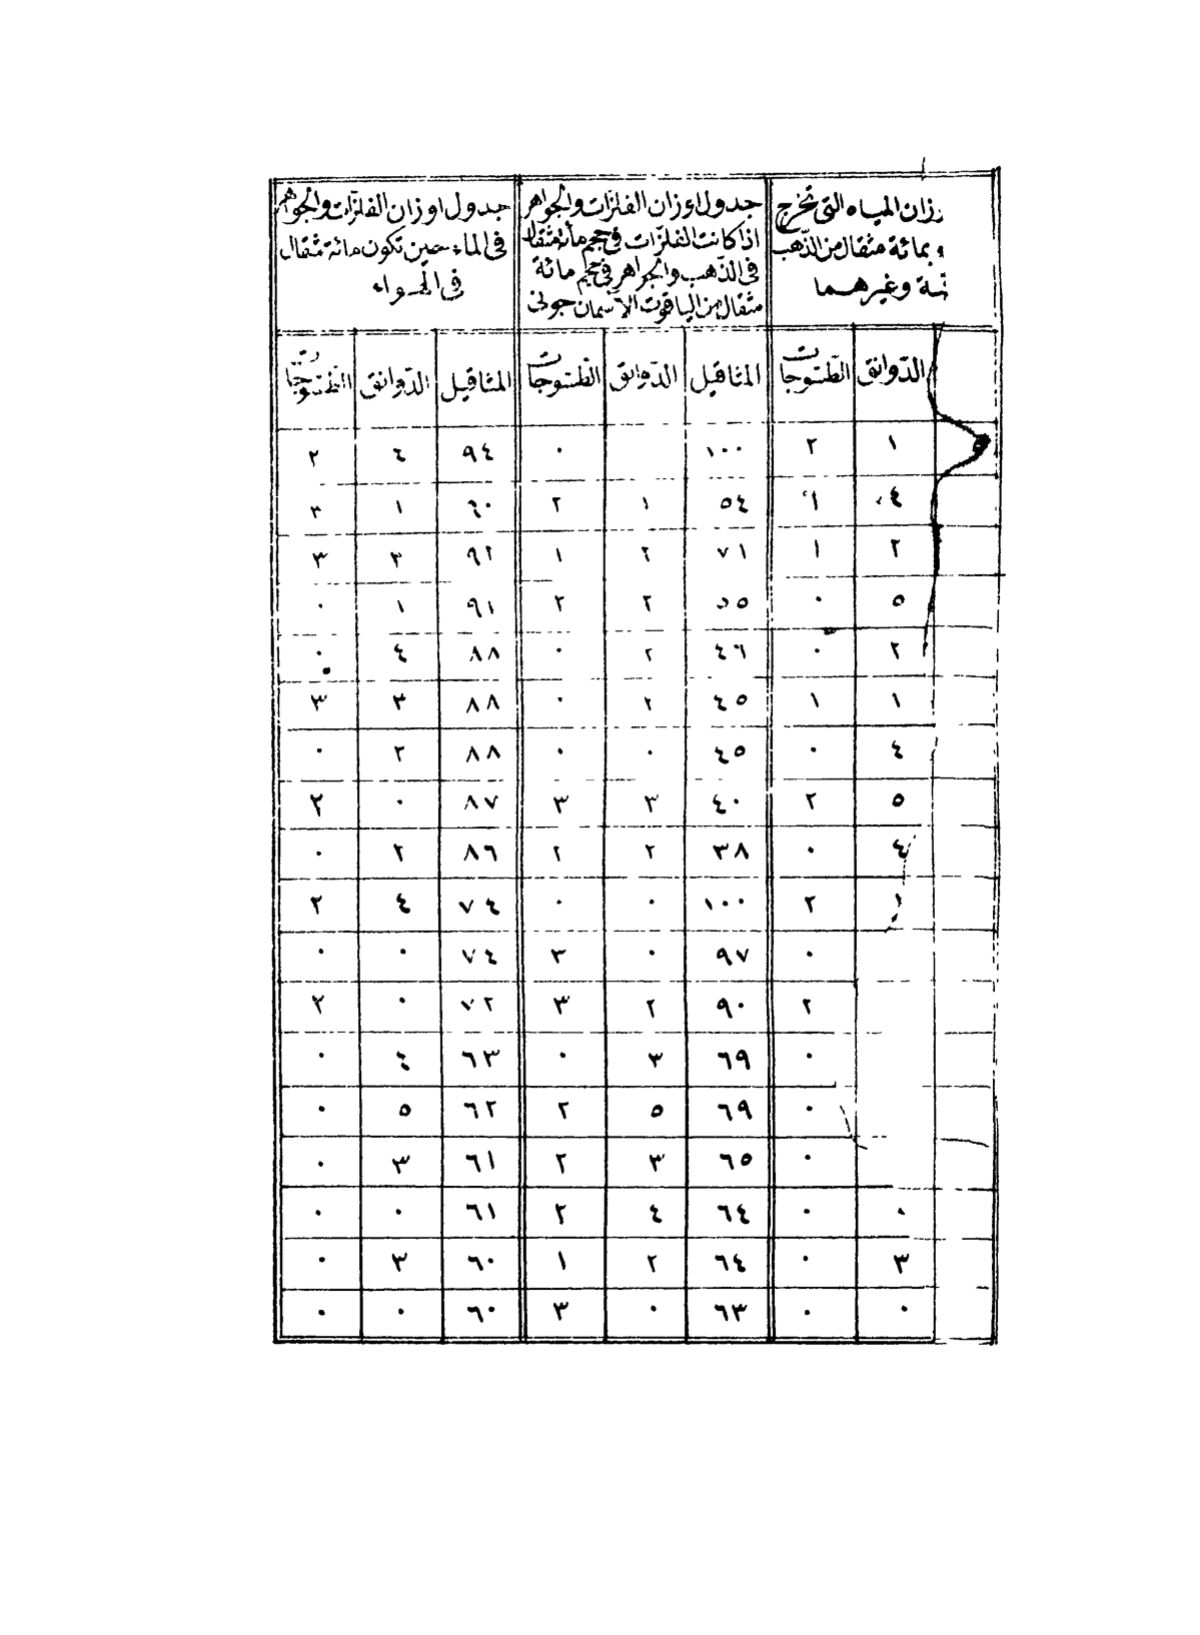 زان المياه التى تخرج
بمائة مثقال من الذهب
وغيرهما
جدول اوزان الفلزّات والجواهر
اذا كانت الفلزّات فى حجم مائة مثقال
فى الذّهب والجواهر فى حجم مائة
مثقال من الياقوت الآسمان جونى
جدول اوزان الفلزّات والجواهر
فى الماء حين تكون مائة مثقال
فى الهواء
الدّوانق الطّسّوجات المثاقيل الدّوانق الطّسّوجات المثاقيل الدّوانق الطّسّوجات
١ ٢ ١٠٠ ٠ ٩٤ ٤ ٢
٤ ١ ٥٤ ١ ٢ ٦٠ ١ ٣
٢ ١ ٧١ ٢ ١ ٩٢ ٣ ٣
٥ ٠ ٥٥ ٢ ٢ ٩١ ١ ٠
٢ ٠ ٤٦ ٢ ٠ ٨٨ ٤ ٠
١ ١ ٤٥ ٢ ٠ ٨٨ ٣ ٣
٤ ٠ ٤٥ ٠ ٠ ٨٨ ٢ ٠
٥ ٢ ٤٠ ٣ ٣ ٨٧ ٠ ٢
٤ ٠ ٣٨ ٢ ٢ ٨٦ ٢ ٠
١ ٢ ١٠٠ ٠ ٠ ٧٤ ٤ ٢
٠ ٩٧ ٠ ٣ ٧٤ ٠ ٠
٢ ٩٠ ٢ ٣ ٧٢ ٠ ٢
٠ ٦٩ ٣ ٠ ٦٣ ٤ ٠
٠ ٦٩ ٥ ٢ ٦٢ ٥ ٠
٠ ٦٥ ٣ ٢ ٦١ ٣ ٠
٠ ٠ ٦٤ ٤ ٢ ٦١ ٠ ٠
٣ ٠ ٦٤ ٢ ١ ٦٠ ٣ ٠
٠ ٠ ٦٣ ٠ ٣ ٦٠ ٠ ٠